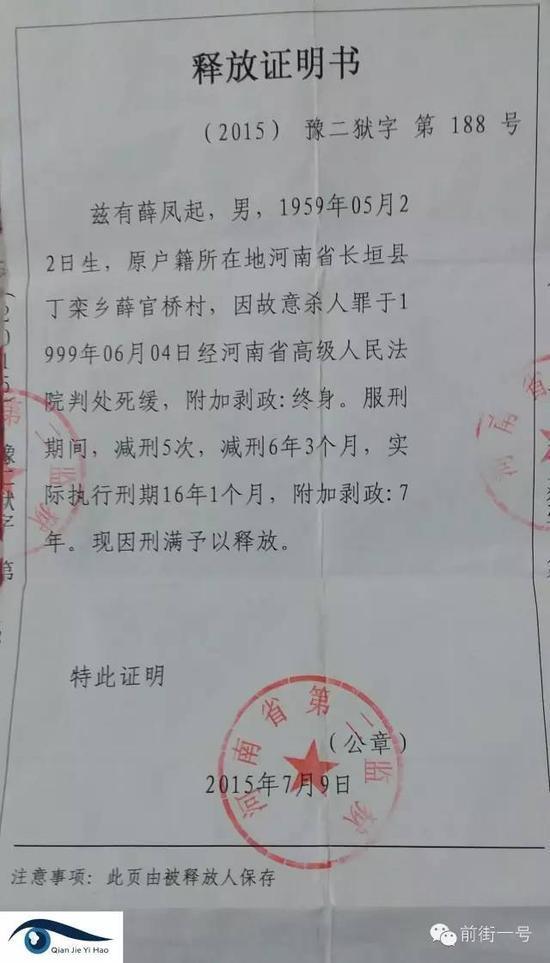 释放证明书
(2015) 豫二狱字 第 188 号
兹有薛凤起，男，1959年05月2
2日生，原户籍所在地河南省长垣县
丁栾乡薛官桥村，因故意杀人罪于1
999年06月04日经河南省高级人民法
院判处死缓，附加剥政:终身。服刑
期间，减刑5次，减刑6年3个月，实
际执行刑期16年1个月，附加剥政:7
年。现因刑满予以释放。
特此证明
(公章)
2015年7月9日
河南省第二监狱
注意事项：此页由被释放人保存
Qian Jie Yi Hao
前街一号